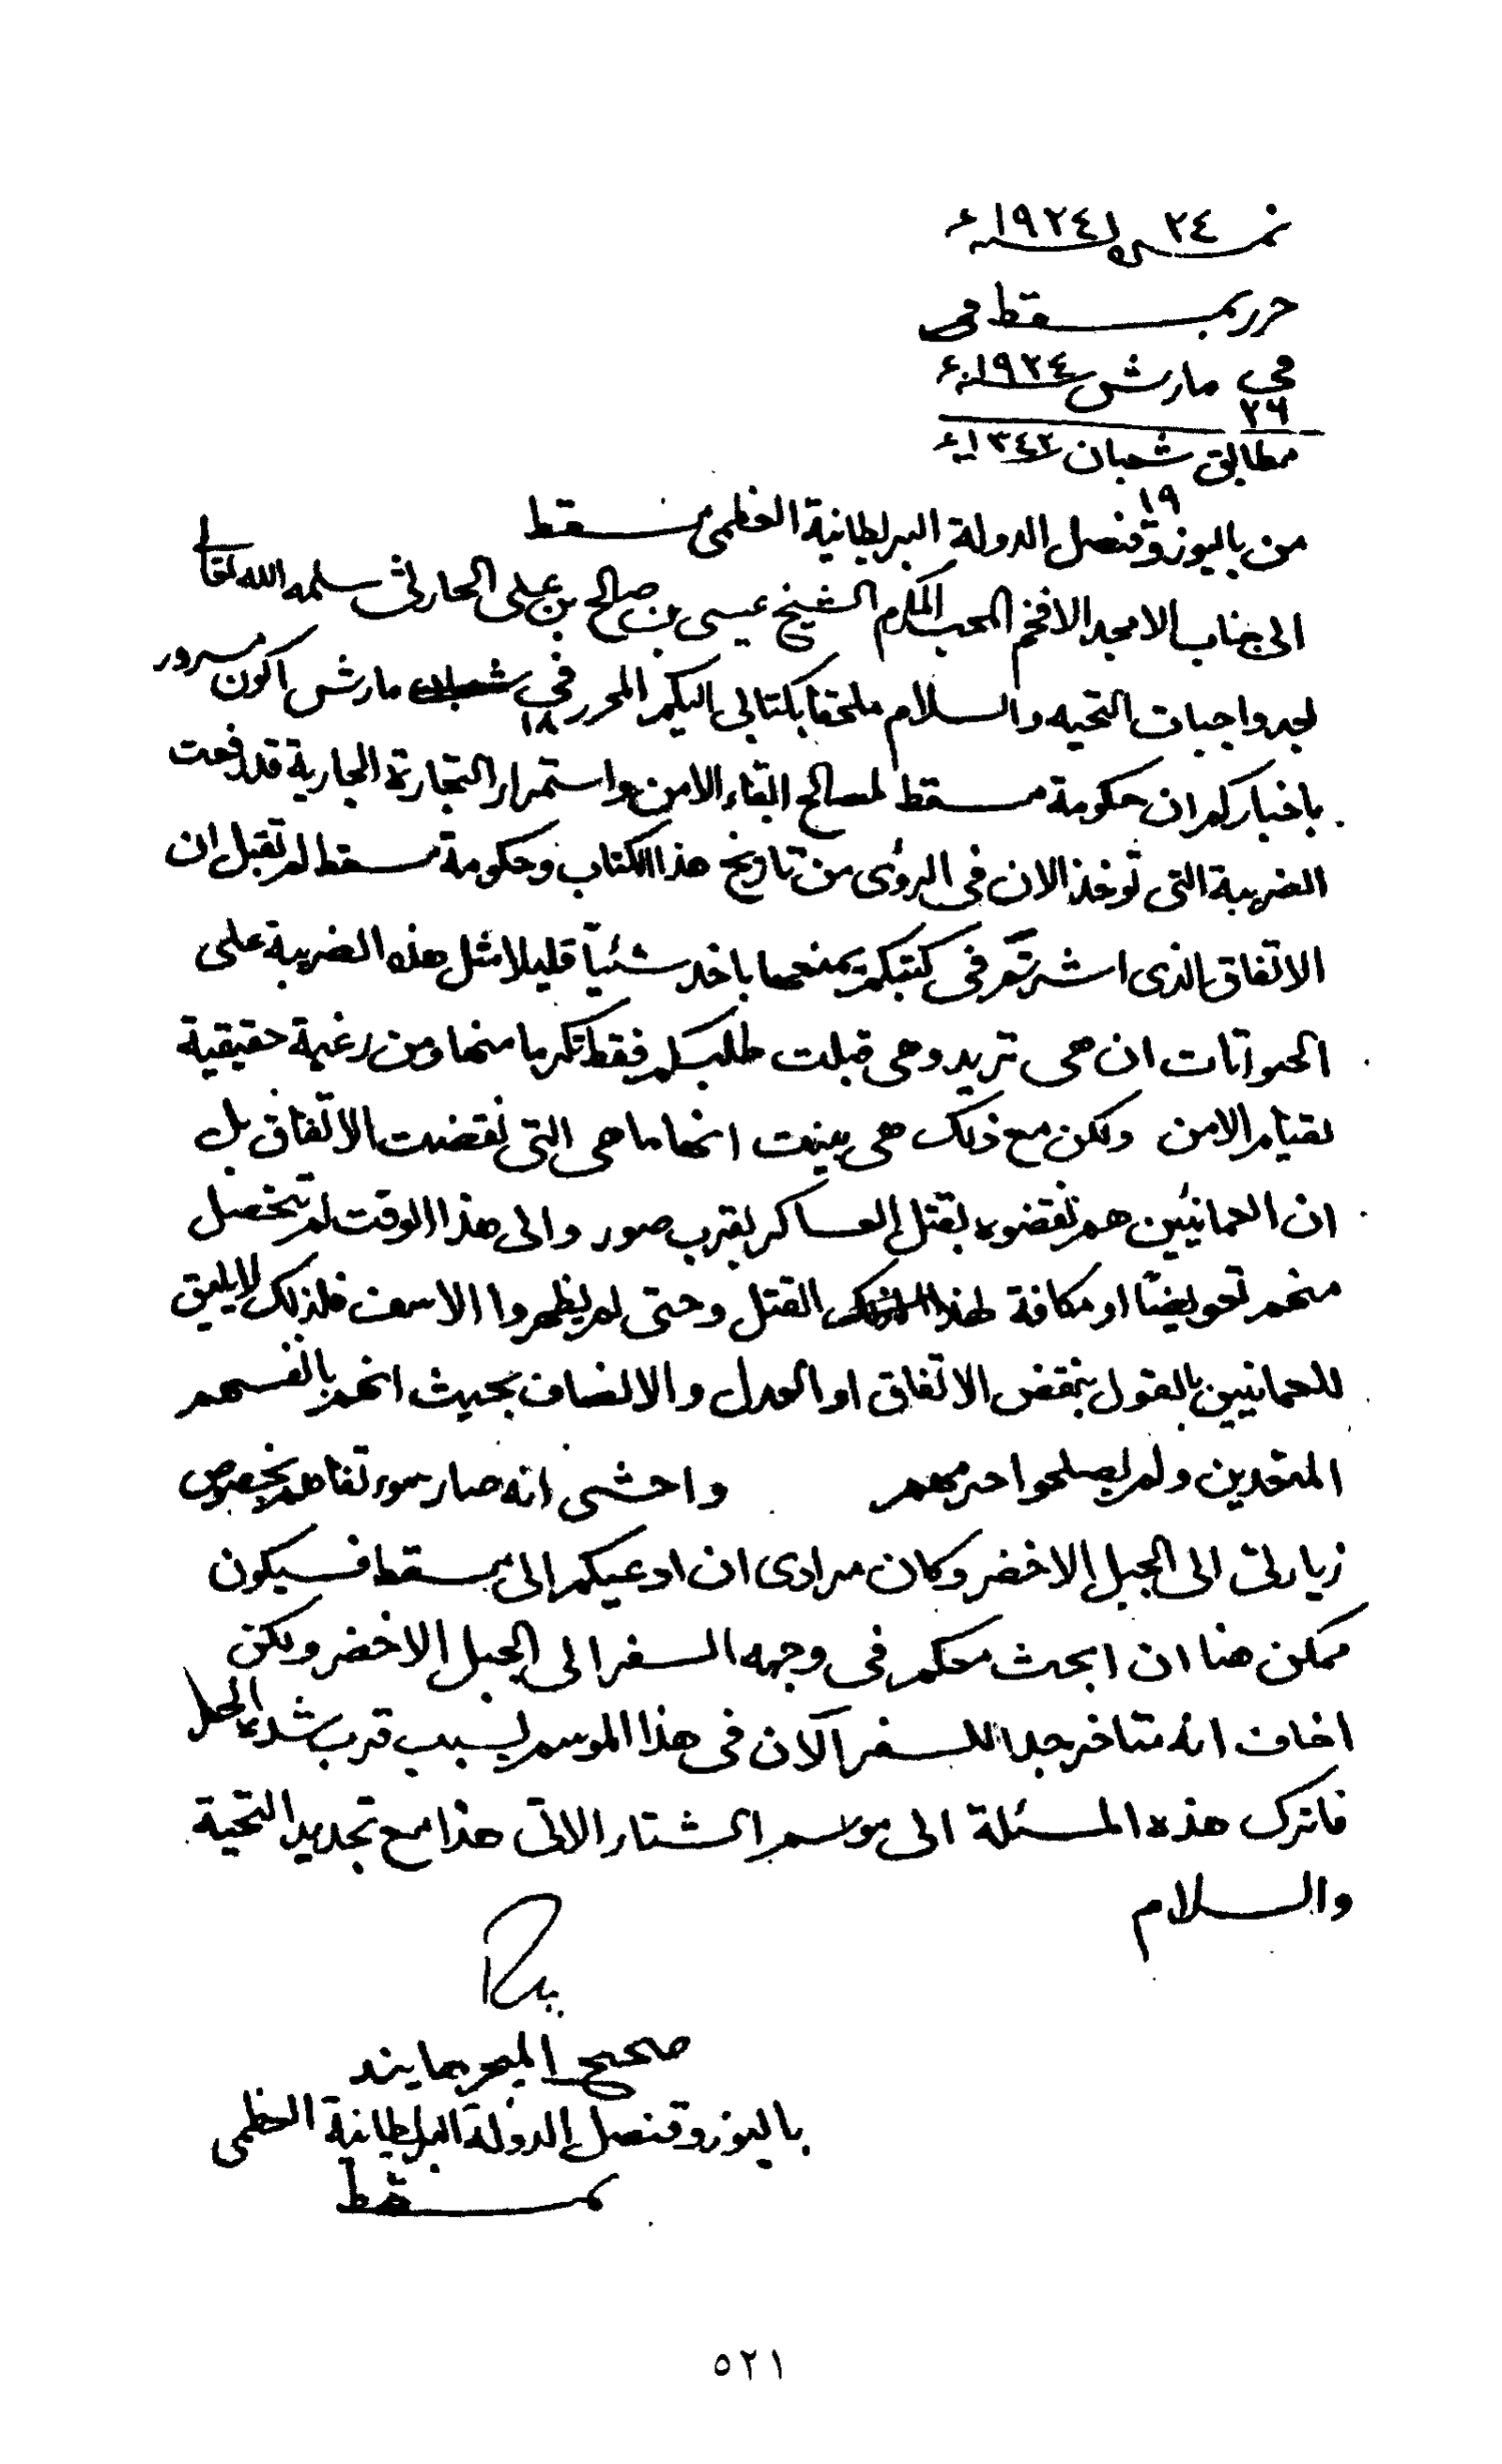 نمرة ٢٤ سنة ١٩٢٤ء
حرر بمسقط في
في ٢٦ مارش سنة ١٩٢٤ء
مطابق ١٩ شعبان ١٣٤٢ء
من باليوز وقنصل الدولة البرطانية العظمى بمسقط
الى جناب الامجد الافخم المحب المكرم الشيخ عيسى بن صالح بن علي الحارثي سلمه الله تعالى
بعد واجبات التحيه والسلام ملحقا بكتابي اليكم المحرر في ١٨ مارش اكون مسرور
باخباركم ان حكومة مسقط لمصالح ابقاء الامن واستمرار التجارة الجارية قد رفعت
الضريبة التى توخذ الان في الروى من تاريخ هذا الكتاب وحكومة مسقط لم تقبل ان
الاتفاق الذى اشرتم في كتبكم يمنعها باخذ شئياً قليلا مثل هذه الضريبة على
الحيوانات ان هى تريد وهى قبلت طلبكم فقط تكرما منها ومن رغبة حقيقية
لقيام الامن ولكن مع ذلك هى بينت انها ما هى التى نقضت الاتفاق بل
ان العمانيين هم نقضوه بقتل العساكر بقرب صور والى هذا الوقت لم تحصل
منهم تعويضا او مكافة لهذا القتل وحتى لم يظهروا الاسف فلذلك لا يليق
للعمانيين بالقول بنقض الاتفاق او العدل والانصاف بحيث انهم بانفسهم
المتعدين ولم يصلحوا جرمهم واخشى انه صار سوء تفاهم بخصوص
زيارتى الى الجبل الاخضر وكان مرادى ان ادعيكم الى مسقط فسيكون
ممكن هنا ان ابحث معكم في وجهه السفر الى الجبل الاخضر ولكن
اخاف انه متاخر جدا للسفر الان في هذا الموسم بسبب قرب شدة الحر
فاترك هذه المسئلة الى موسم الشتاء الاتى هذا مع تجديد التحية
والسلام
صحيح الميجر هايند
باليوز وقنصل الدولة البرطانية العظمى
بمسقط
٥٢١